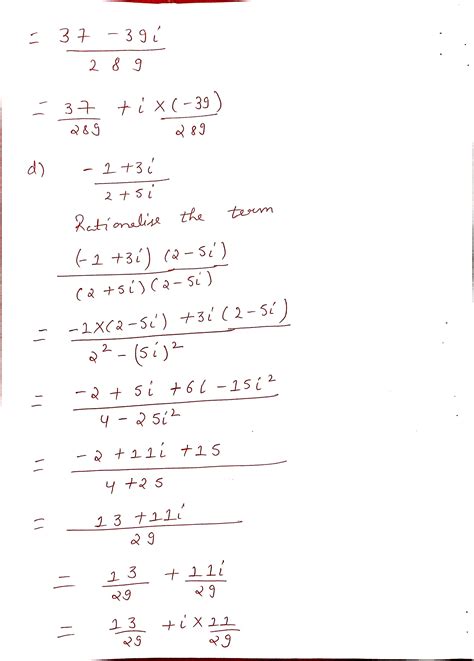 = (37 - 39i)/(289)
= 37/289 + i × (-39)/289
d) (-1 + 3i)/(2 + 5i)
Rationelise the term
((-1 + 3i) (2 - 5i))/((2 + 5i) (2 - 5i))
= (-1×(2 - 5i) + 3i (2 - 5i))/(2² - (5i)²)
= (-2 + 5i + 6i - 15i²)/(4 - 25i²)
= (-2 + 11i + 15)/(4 + 25)
= (13 + 11i)/(29)
= 13/29 + 11i/29
= 13/29 + i × 11/29